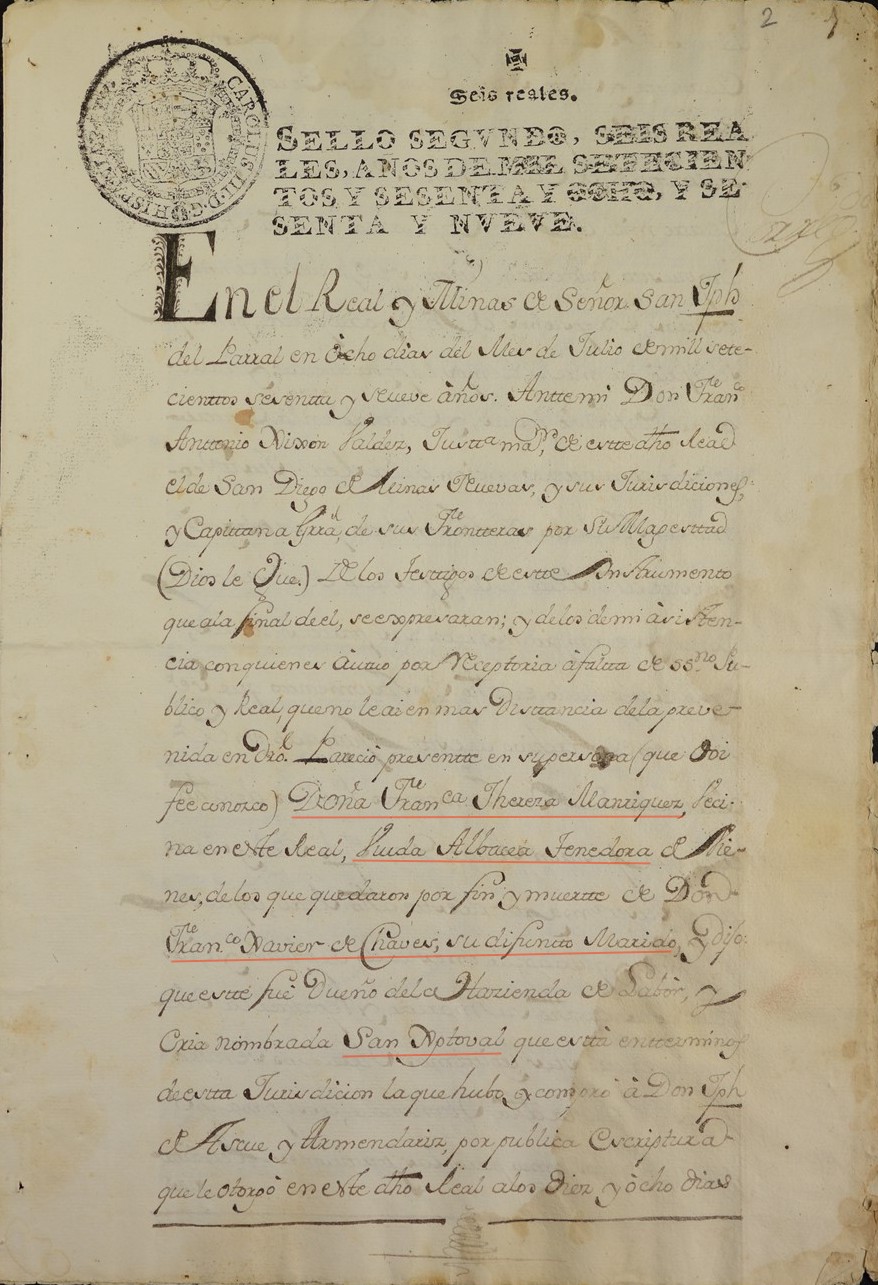 2
CAROLUS III D G HISPANIAR
Seis reales.
SELLO SEGVNDO, SEIS REA
LES, AÑOS DE MIL SETECIEN
TOS, Y SESENTA Y OCHO, Y SE-
SENTA Y NVEVE.
En el Real y Minas de Señor San Jph
del Parral en ocho dias del Mes de Julio de mill sete-
cienttos sesentta y nueve años. Antte mi Don Franco
Anttonio Valdez, Justtª mãr, de estte dho Real
el de San Diego de Minas Nuevas, y sus Jurisdiciones,
y Capittan a Grrâ, de sus Frontteras por Su Magesttad
(Dios le Gue.) De los Testtigos de estte Instrumento
que ala final de el, se expresaran; y delos de mi àsisten-
cia con quienes àctuo por Receptoria àfalta de ssno. Pu-
blico y Real, que no le ai en mas Disttancia dela preve-
nida en Dro. Pareciò presentte en su persona (que Doi
fee conosco) Doña Franca Thereza Manriquez, Veci-
na en este Real, Viuda Albacea Tenedora de Bie-
nes, de los que quedaron por fin, y muertte de Don
Franco. Xavier de Chaves, su difuncto Marido, Y Dijo
que estte fuè Dueño dela Hazienda de Labòr, y
Cria nombrada San Xptoval que està en tterminos
de estta Jurisdicion la que hubo, y comprò à Don Jph
de Ascue y Armendariz, por publica Escriptura
que le otorgò en este dho Real alos diez y òcho dias